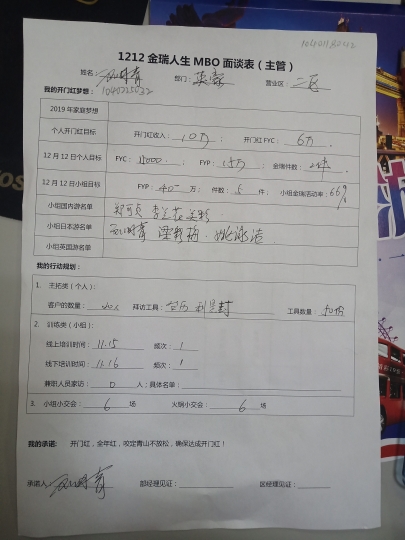 1212 金瑞人生 MBO 面谈表（主管）
姓名： 部门： 营业区：二区
我的开门红梦想：1040225032
2019 年家庭梦想
个人开门红目标 开门红收入：10万 开门红 FYC：6万 。
12 月 12 日个人目标 FYC：11000 FYP：15万 金瑞件数：2件 。
12 月 12 日小组目标 FYP：40 万； 件数：5 件； 小组金瑞活动率：66%
小组国内游名单
小组日本游名单
小组英国游名单
我的行动规划：
1. 主拓类（个人）：
客户的数量： 拜访工具：台历 利是封 工具数量：50份
2. 训练类（小组）：
线上培训时间：11.15 频次：1
线下培训时间：11.16 频次：1
兼职人员家访：0 人；具体名单：
3. 小组小交会：6 场 火锅小交会：6 场
我的承诺： 开门红，全年红，咬定青山不放松，确保达成开门红！
承诺人： 部经理见证： 区经理见证：